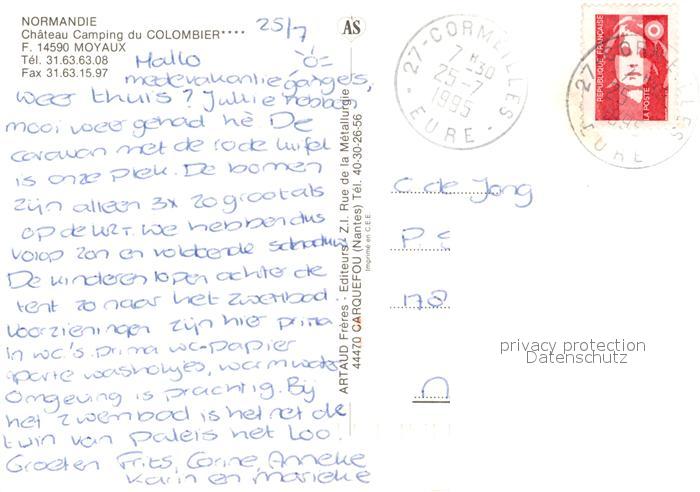 NORMANDIE
Château Camping du COLOMBIER****
F. 14590 MOYAUX
Tél. 31.63.63.08
Fax 31.63.15.97
25/7
Hallo
medevakantiegangers,
weer thuis? Jullie hebben
mooi weer gehad hè De
caravan met de rode luifel
is onze plek. De bomen
zijn alleen 3x zo groot als
op de krt. We hebben dus
volop zon en voldoende schaduw
De kinderen lopen achter de
tent zo naar het zwembad.
Voorzieningen zijn hier prima
in wc's prima wc-papier
aparte washokjes, warm water
Omgeving is prachtig. Bij
het zwembad is het net de
tuin van paleis het Loo.
Groeten Frits, Corine, Anneke
Karin en Marieke
AS
ARTAUD Frères - Editeurs - Z.I. Rue de la Métallurgie
44470 CARQUEFOU (Nantes) Tél. 40-30-26-56
Imprimé en C.E.E.
27-CORMEILLES
7 H30
25-7
1995
EURE
REPUBLIQUE FRANÇAISE
LA POSTE
C. de Jong
P. S
178
privacy protection
Datenschutz